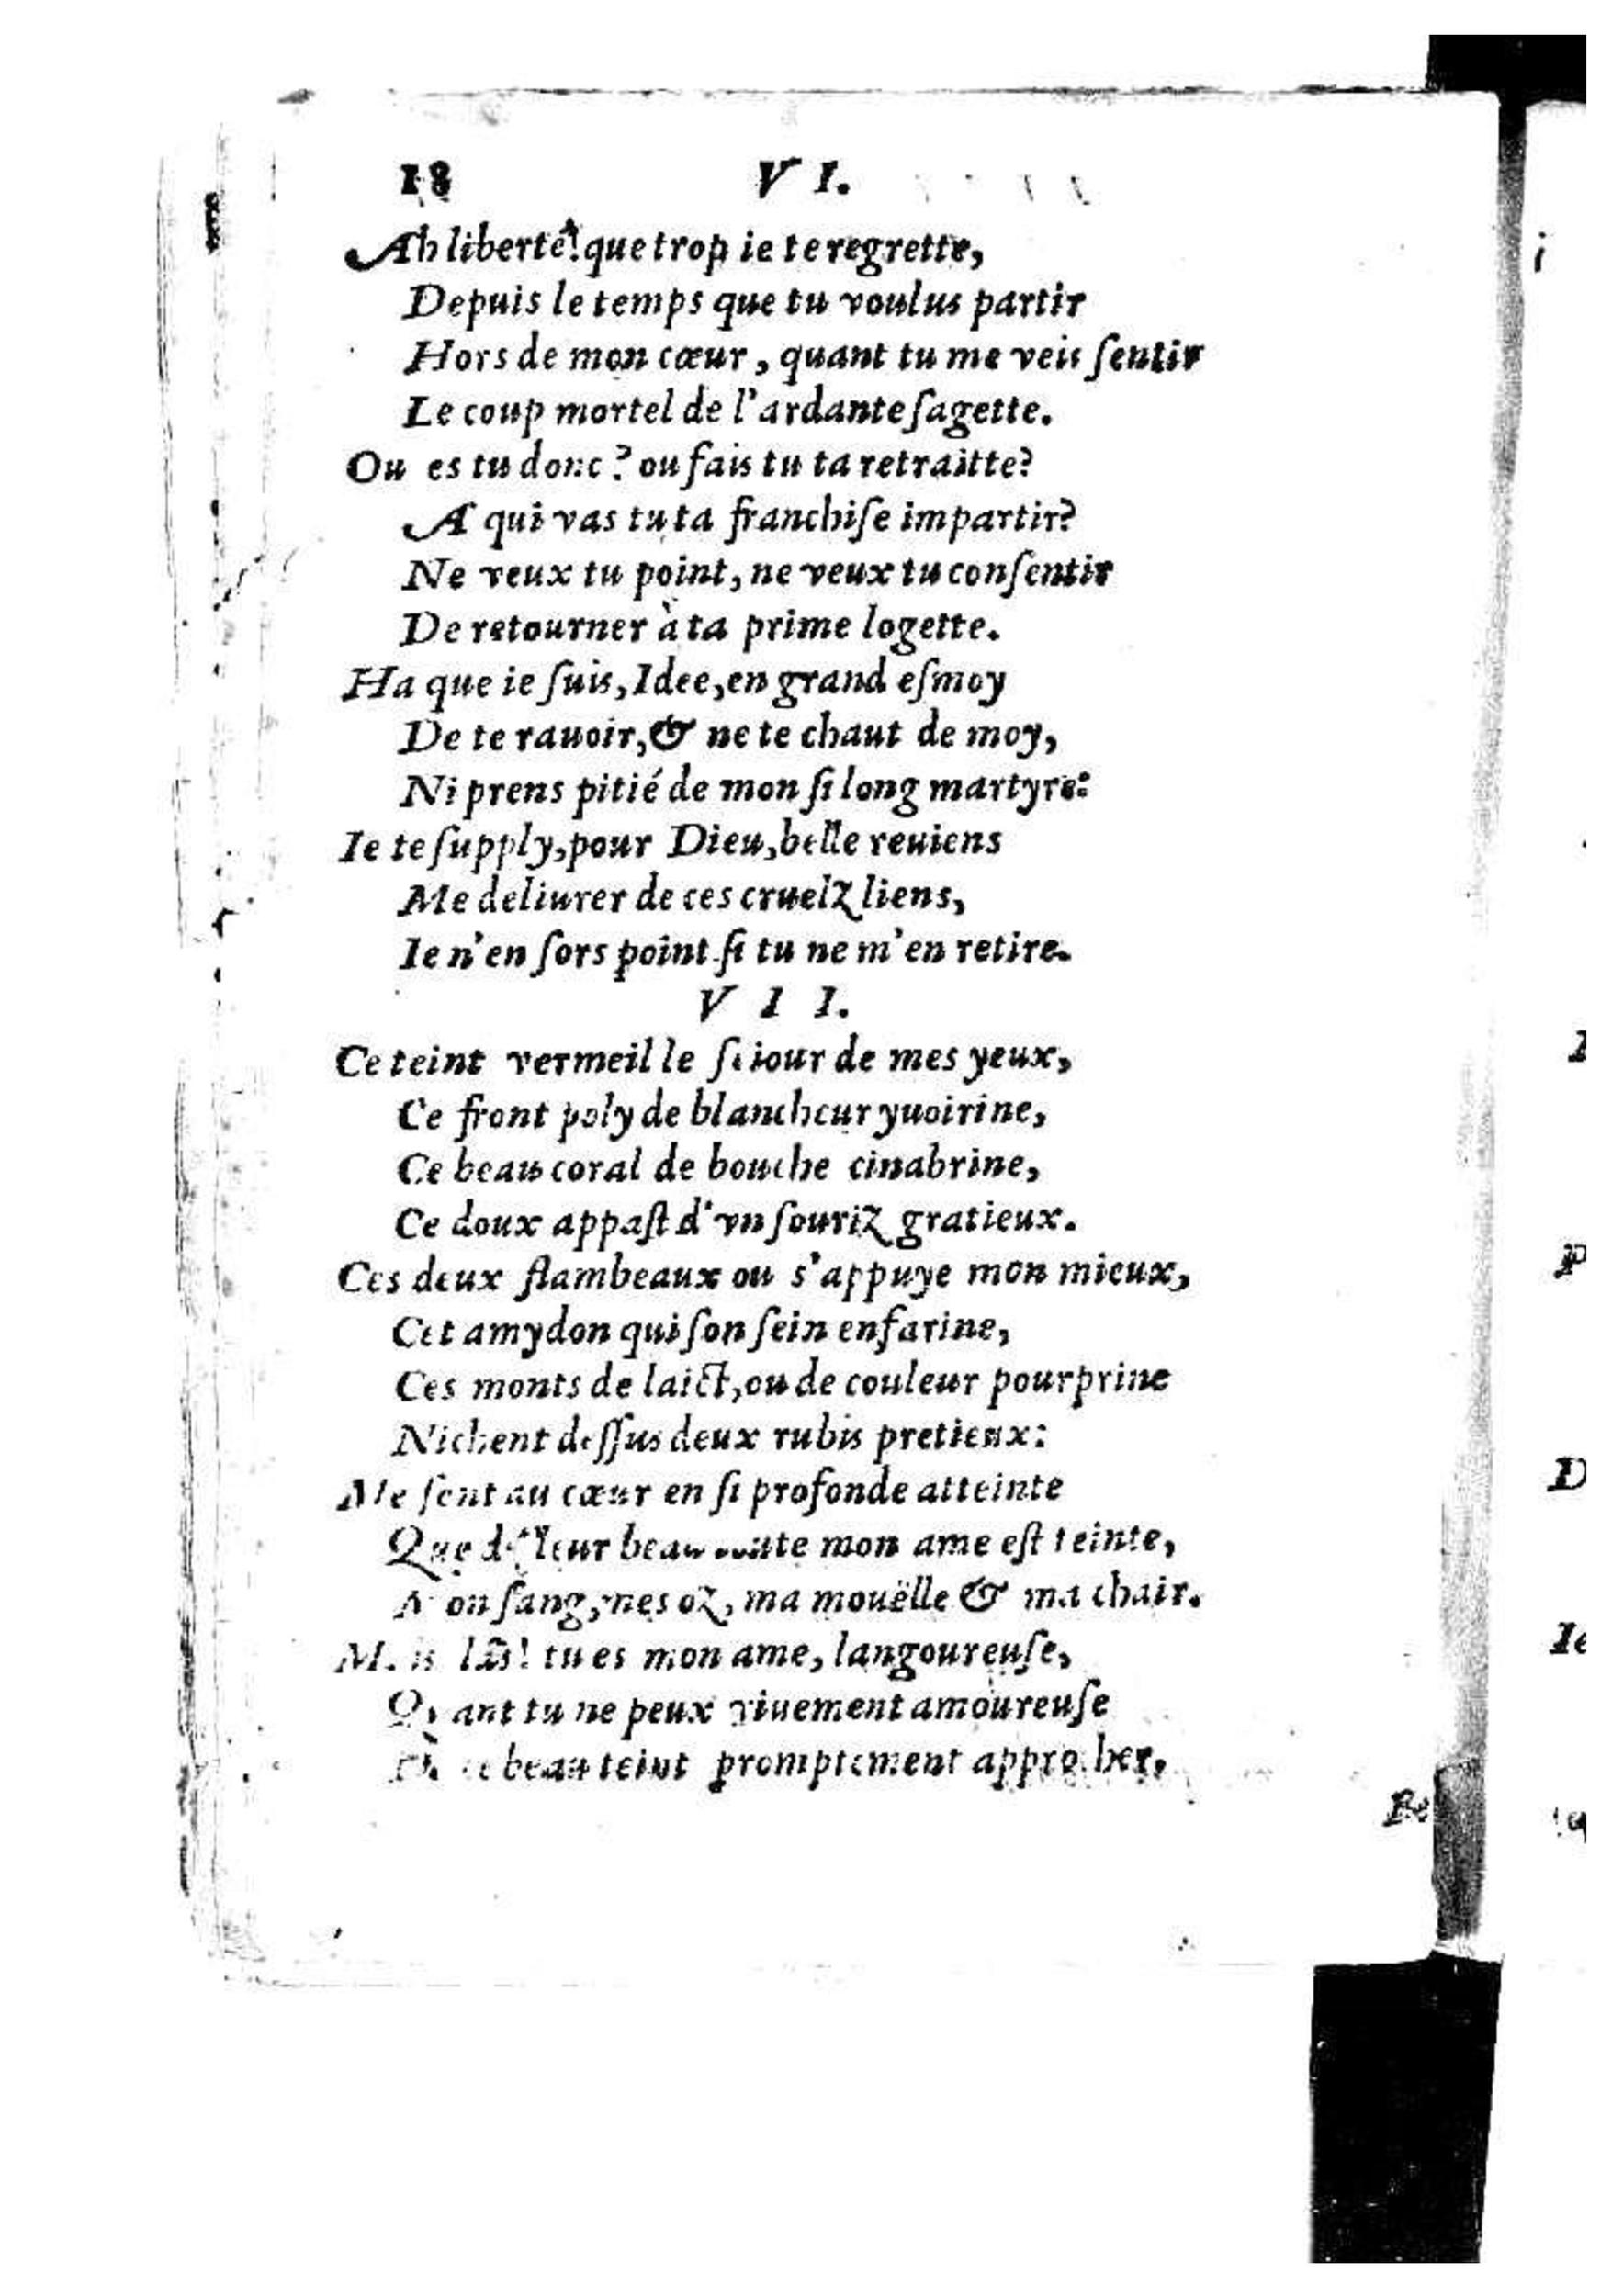 18 VI.
Ah liberté! que trop ie te regrette,
Depuis le temps que tu voulus partir
Hors de mon cœur, quant tu me veis ſentir
Le coup mortel de l'ardante ſagette.
Ou es tu donc? ou fais tu ta retraitte?
A qui vas tu ta franchiſe impartir?
Ne veux tu point, ne veux tu conſentir
De retourner à ta prime logette.
Ha que ie ſuis, Idee, en grand eſmoy
De te rauoir, & ne te chaut de moy,
Ni prens pitié de mon ſi long martyre:
Ie te ſupply, pour Dieu, belle reuiens
Me deliurer de ces cruelz liens,
Ie n'en ſors point ſi tu ne m'en retire.
VII.
Ce teint vermeil le ſeiour de mes yeux,
Ce front poly de blancheur yuoirine,
Ce beau coral de bouche cinabrine,
Ce doux appaſt d'vn ſouriz gratieux.
Ces deux flambeaux ou s'appuye mon mieux,
Cet amydon qui ſon ſein enfarine,
Ces monts de laict, ou de couleur pourprine
Nichent deſſus deux rubis pretieux:
Me ſont au cœur en ſi profonde atteinte
Que leur mon ame eſt teinte,
Mon ſang, mes oz, ma mouëlle & ma chair.
Mais làs! tu es mon ame, langoureuſe,
Quant tu ne peux viuement amoureuſe
beau teint promptement approcher,
Be